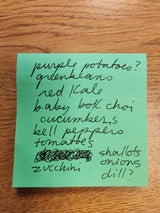 purple potatoes?
greenbeans
red kale
baby bok choi
cucumbers
bell peppers
tomatoes
shallots
onions
zucchini
dill?